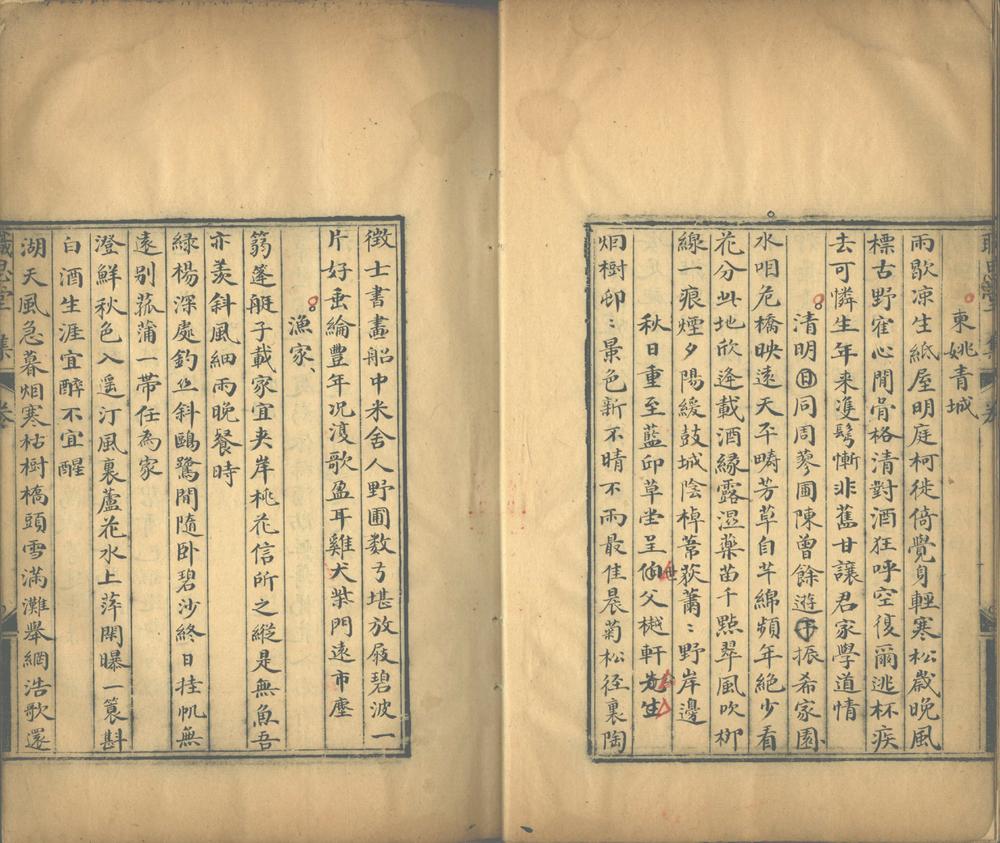 東姚青城
雨歇凉生紙屋明庭柯徙倚覺身輕寒松歲晚風
標古野寉心閒骨格清對酒狂呼空復爾逃杯疾
去可憐生年来䨇髩慚非舊甘讓君家學道情
清明日同周蓼圃陳曾餘遊于振希家園
水咱危橋映遠天平疇芳草自芊綿頻年絶少看
花分此地欣逢載酒緣露濕藥苗千點翠風吹柳
線一痕煙夕陽緩鼓城陰棹葦荻蕭〻野岸邊
秋日重至藍卬草堂呈伯父樾軒先生
烟樹卭〻景色新不晴不雨最佳晨菊松徑裏陶
徴士書畫船中米舍人野圃数弓堪放屐碧波一
片好垂綸豐年况復歌盈耳雞犬柴門遠市塵
漁家、
篛蓬艇子載家宜夾岸桃花信所之縱是無魚吾
亦羨斜風細雨晚餐時
綠楊深處釣丝斜鷗鷺閒隨卧碧沙終日挂帆無
遠别菰蒲一帶任為家
澄鮮秋色入遥汀風裏蘆花水上萍閑曝一簑斟
白酒生涯宜醉不宜醒
湖天風急暮烟寒枯樹橋頭雪滿灘舉網浩歌還